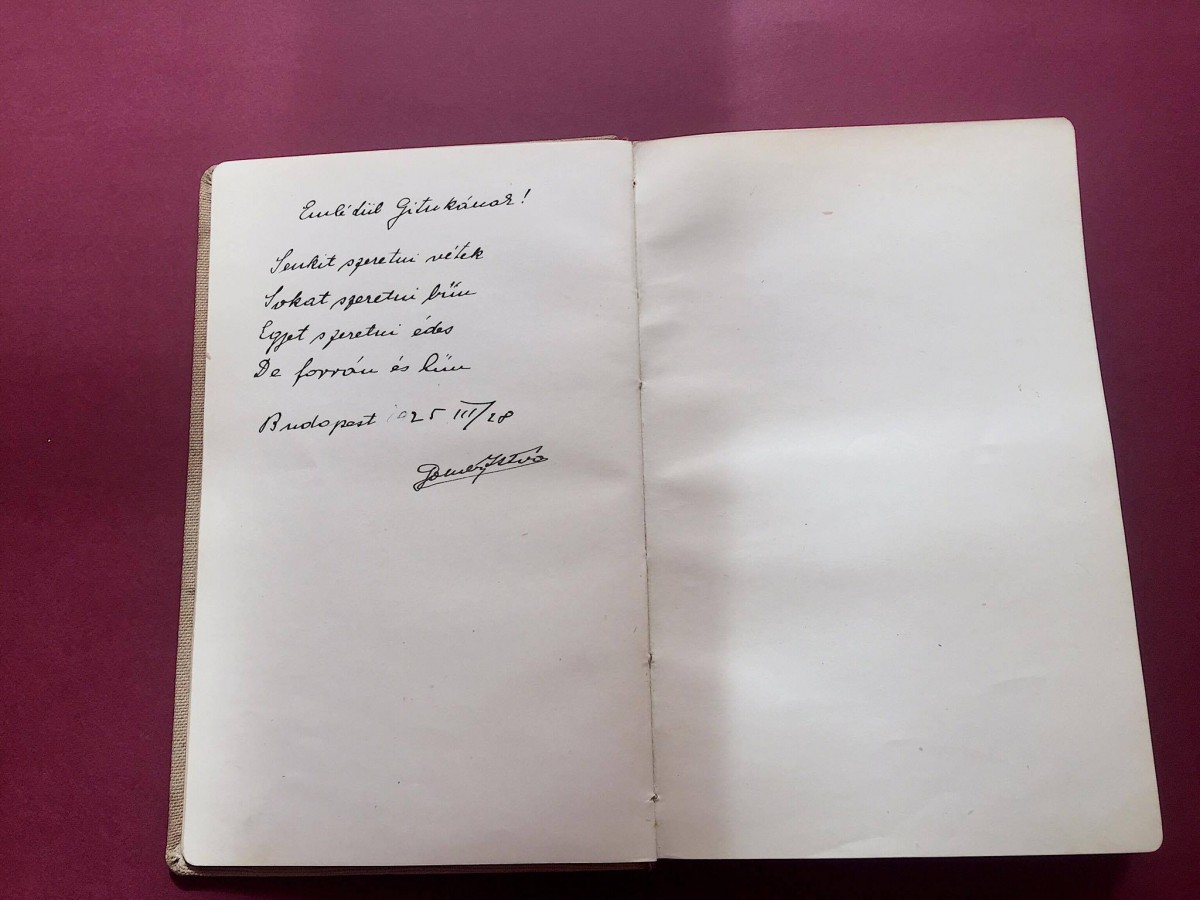 Emlékül Gitukának!
Senkit szeretni vétek
Sokat szeretni bűn
Egyet szeretni édes
De forrón és hűn
Budapest 1925 III/28
István